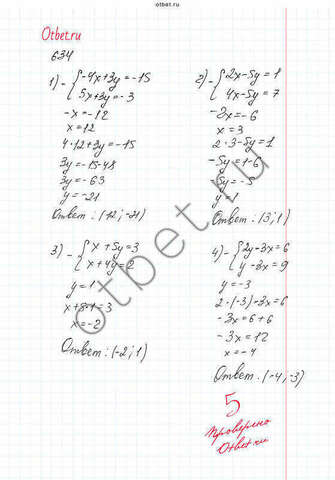 otbet.ru
Otbet.ru
634
1) - { -4x+3y=-15
5x+3y=-3
-x=-12
x=12
4·12+3y=-15
3y=-15-48
3y=-63
y=-21
Ответ: (12;-21)
2) - { 2x-5y=1
4x-5y=7
-2x=-6
x=3
2·3-5y=1
-5y=1-6
-5y=-5
y=1
Ответ: (3;1)
3) - { x+5y=3
x+4y=2
y=1
x+5·1=3
x=-2
Ответ: (-2;1)
4) - { 2y-3x=6
y-3x=9
y=-3
2·(-3)-3x=6
-3x=6+6
-3x=12
x=-4
Ответ: (-4;-3)
5
проверено
Otbet.ru
otbet.ru